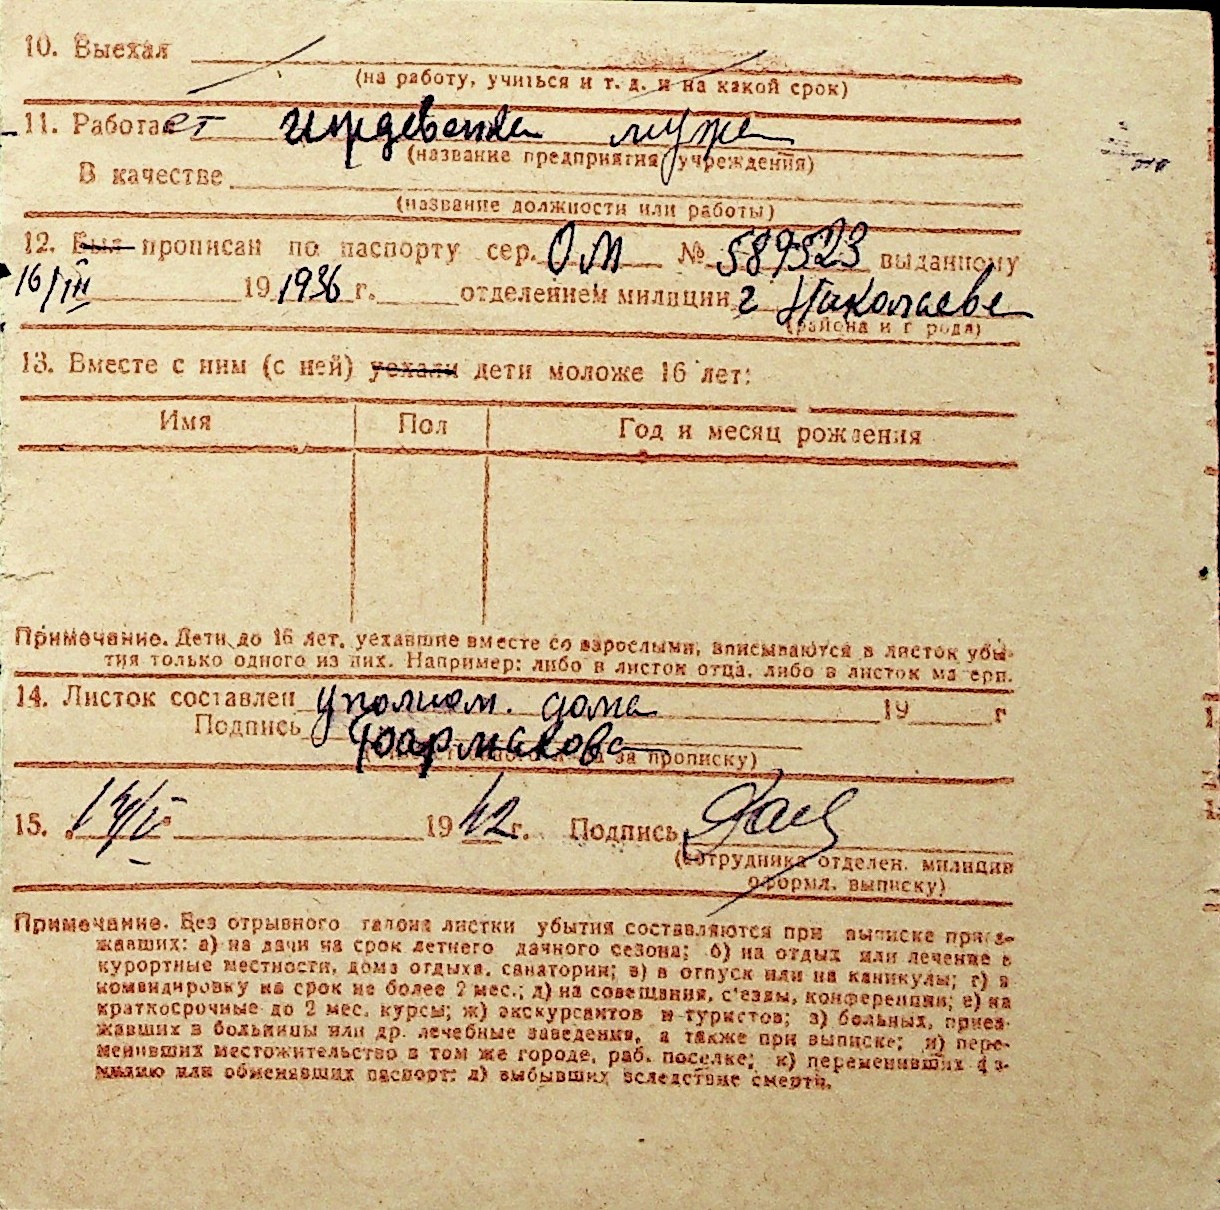 10. Выехал
(на работу, учиться и т. д. и на какой срок)
11. Работает иждевенка мужа
(название предприятия, учреждения)
В качестве
(название должности или работы)
12. Был прописан по паспорту сер. ОМ № 589523 выданному
16/III 19 1936 г. отделением милиции г Николаеве
(района и города)
13. Вместе с ним (с ней) уехали дети моложе 16 лет:
Имя Пол Год и месяц рождения
Примечание. Дети до 16 лет, уехавшие вместе со взрослыми, вписываются в листок убы-
тия только одного из них. Например: либо в листок отца, либо в листок матери.
14. Листок составлен уполном. дома 19 г
Подпись
за прописку)
15. 19 42 г. Подпись
(сотрудника отделен. милиции
оформл. выписку)
Примечание. Без отрывного талона листки убытия составляются при выписке приез-
жавших: а) на дачи на срок летнего дачного сезона; б) на отдых или лечение в
курортные местности, дома отдыха, санатории; в) в отпуск или на каникулы; г) в
командировку на срок не более 2 мес.; д) на совещания, с'езды, конференции; е) на
краткосрочные до 2 мес. курсы; ж) экскурсантов и туристов; з) больных, приез-
жавших в больницы или др. лечебные заведения, а также при выписке; и) пере-
менивших местожительство в том же городе, раб. поселке; к) переменивших фа-
милию или обменявших паспорт; л) выбывших вследствие смерти.